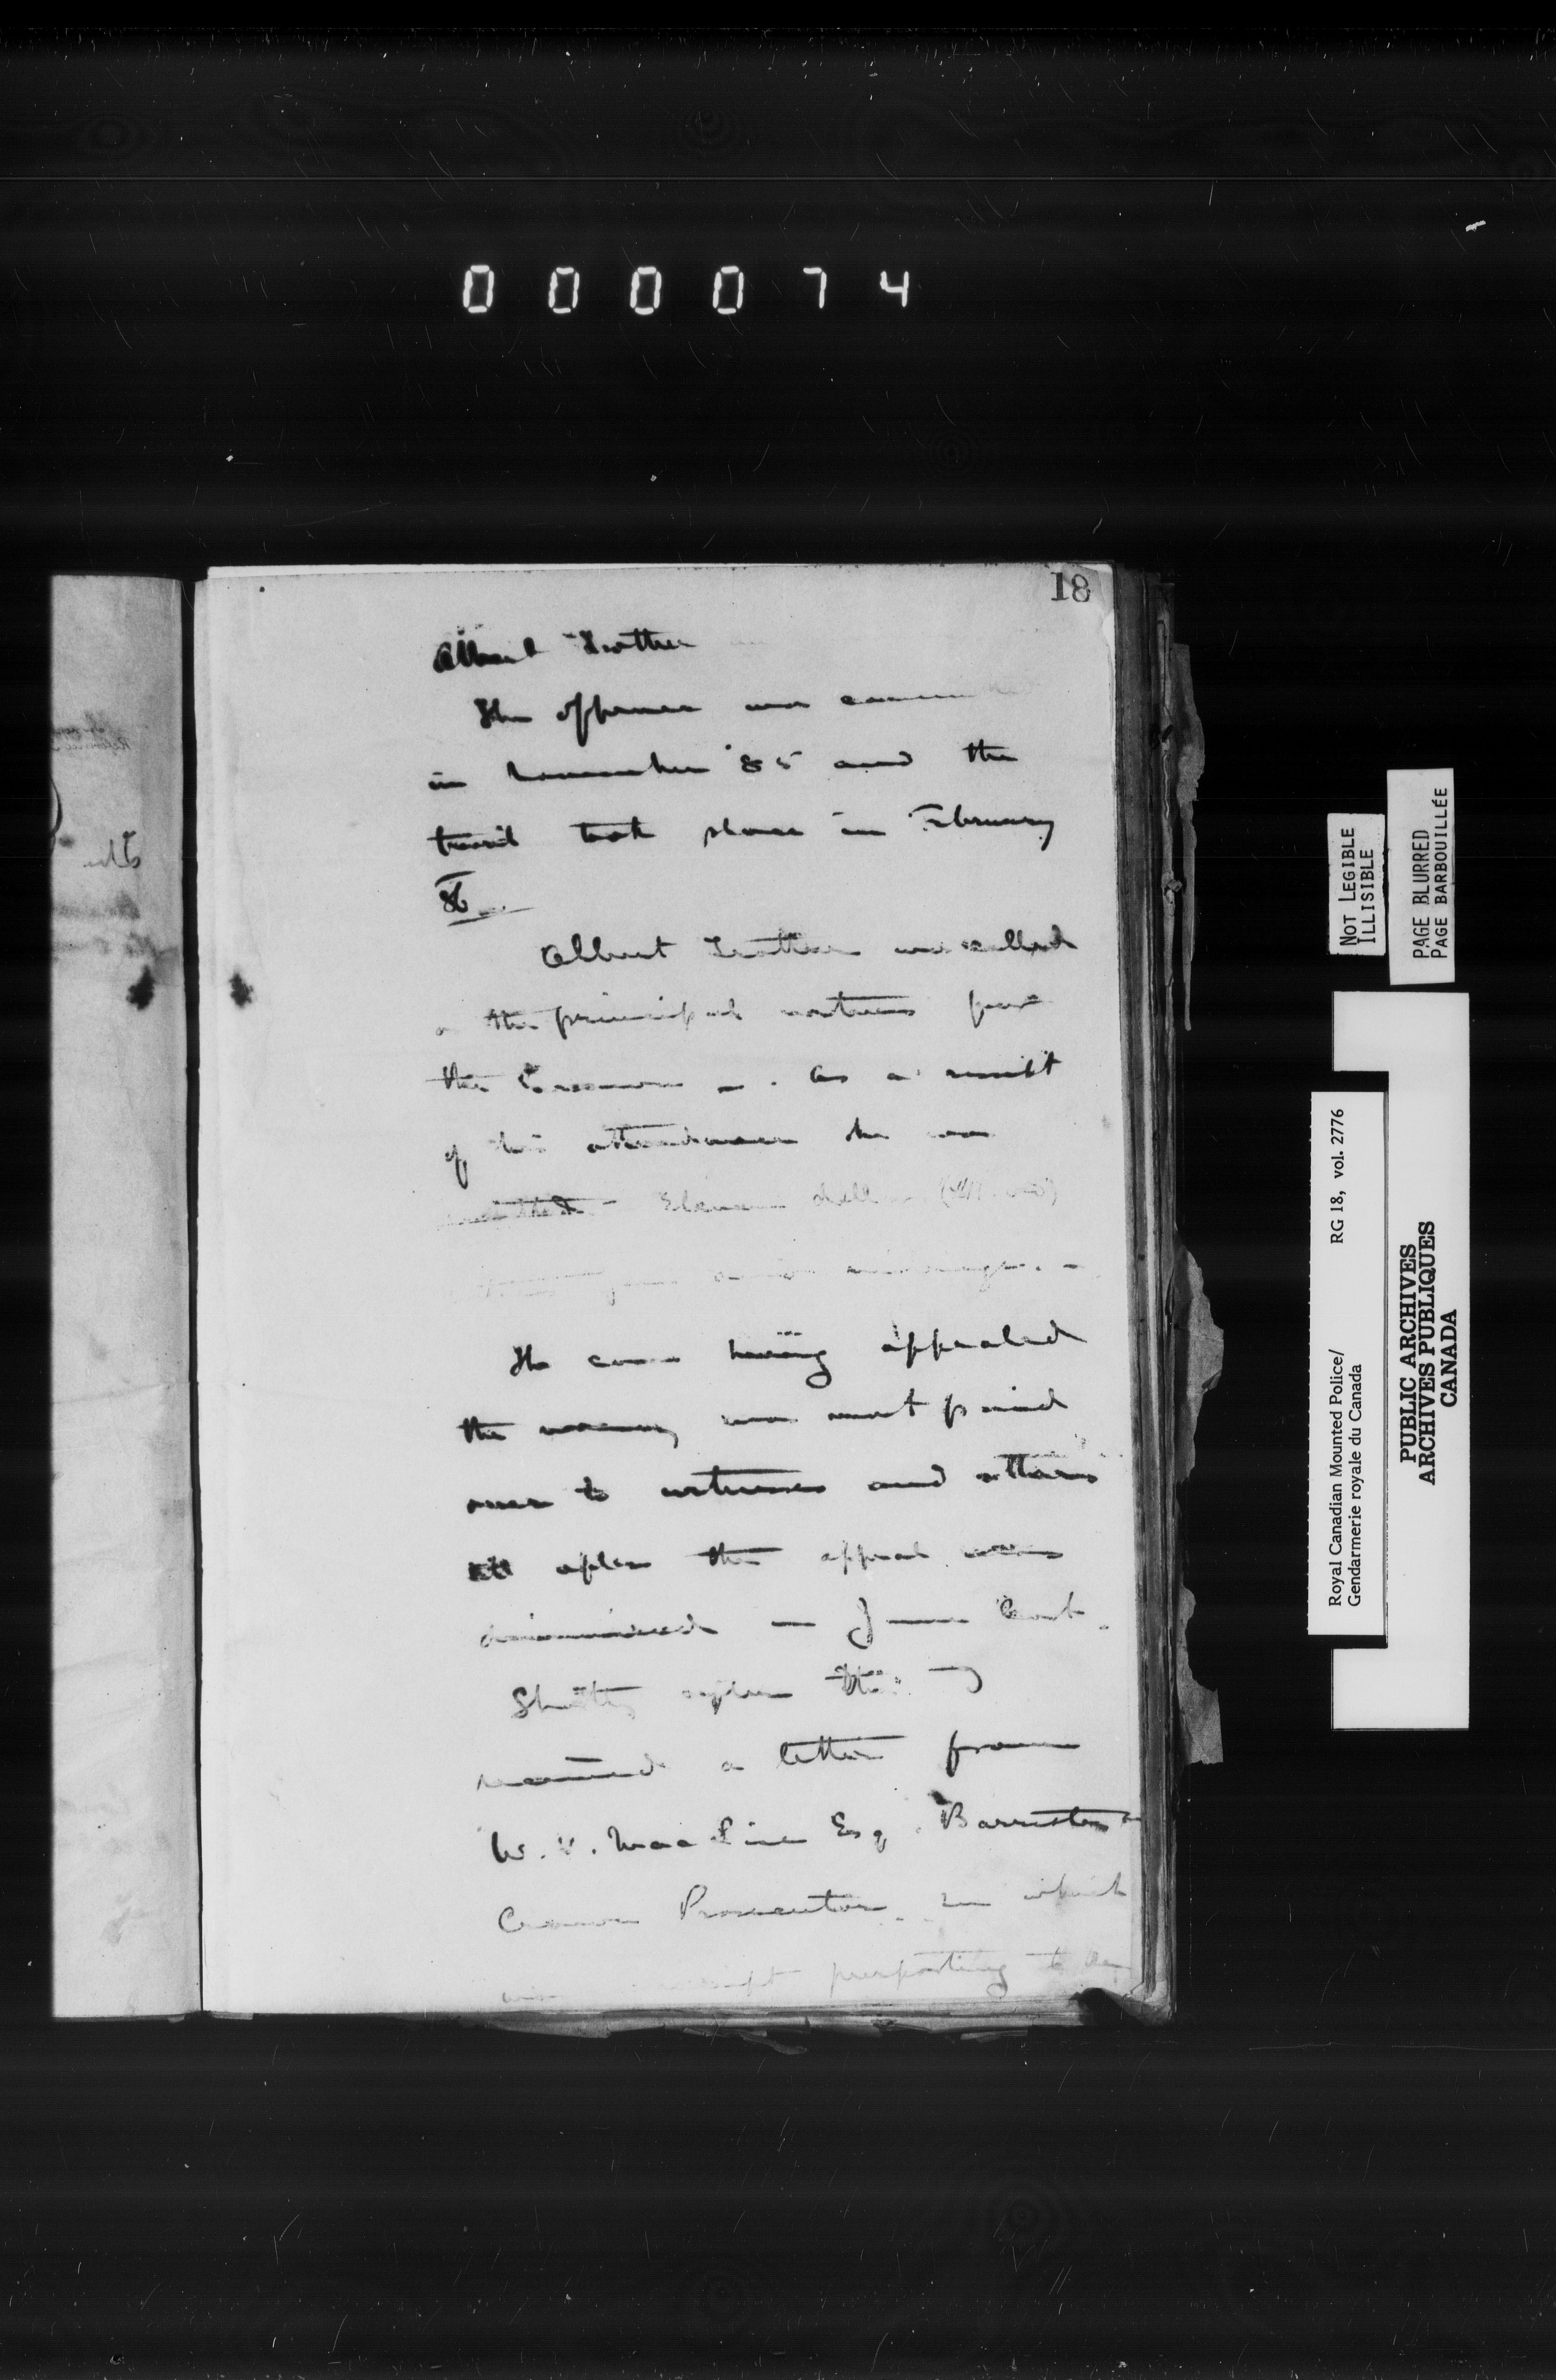 000074
18
Albert Trotter
The offence was
in November '85 and the
trial took place in February
86
Albert Trotter was called
as the principal witness for
the Crown. As a result
of his attendance he was
Eleven
mileage.
The case having appealed
the money was not paid
over to witnesses and others
till after the appeal was
dismissed in June Court.
Shortly after this I
received a letter from
W. V. MacLise Esq. Barrister
Crown Prosecutor in which
was purporting to
NOT LEGIBLE
ILLISIBLE
PAGE BLURRED
PAGE BARBOUILLÉE
Royal Canadian Mounted Police/ RG 18, vol. 2776
Gendarmerie royale du Canada
PUBLIC ARCHIVES
ARCHIVES PUBLIQUES
CANADA